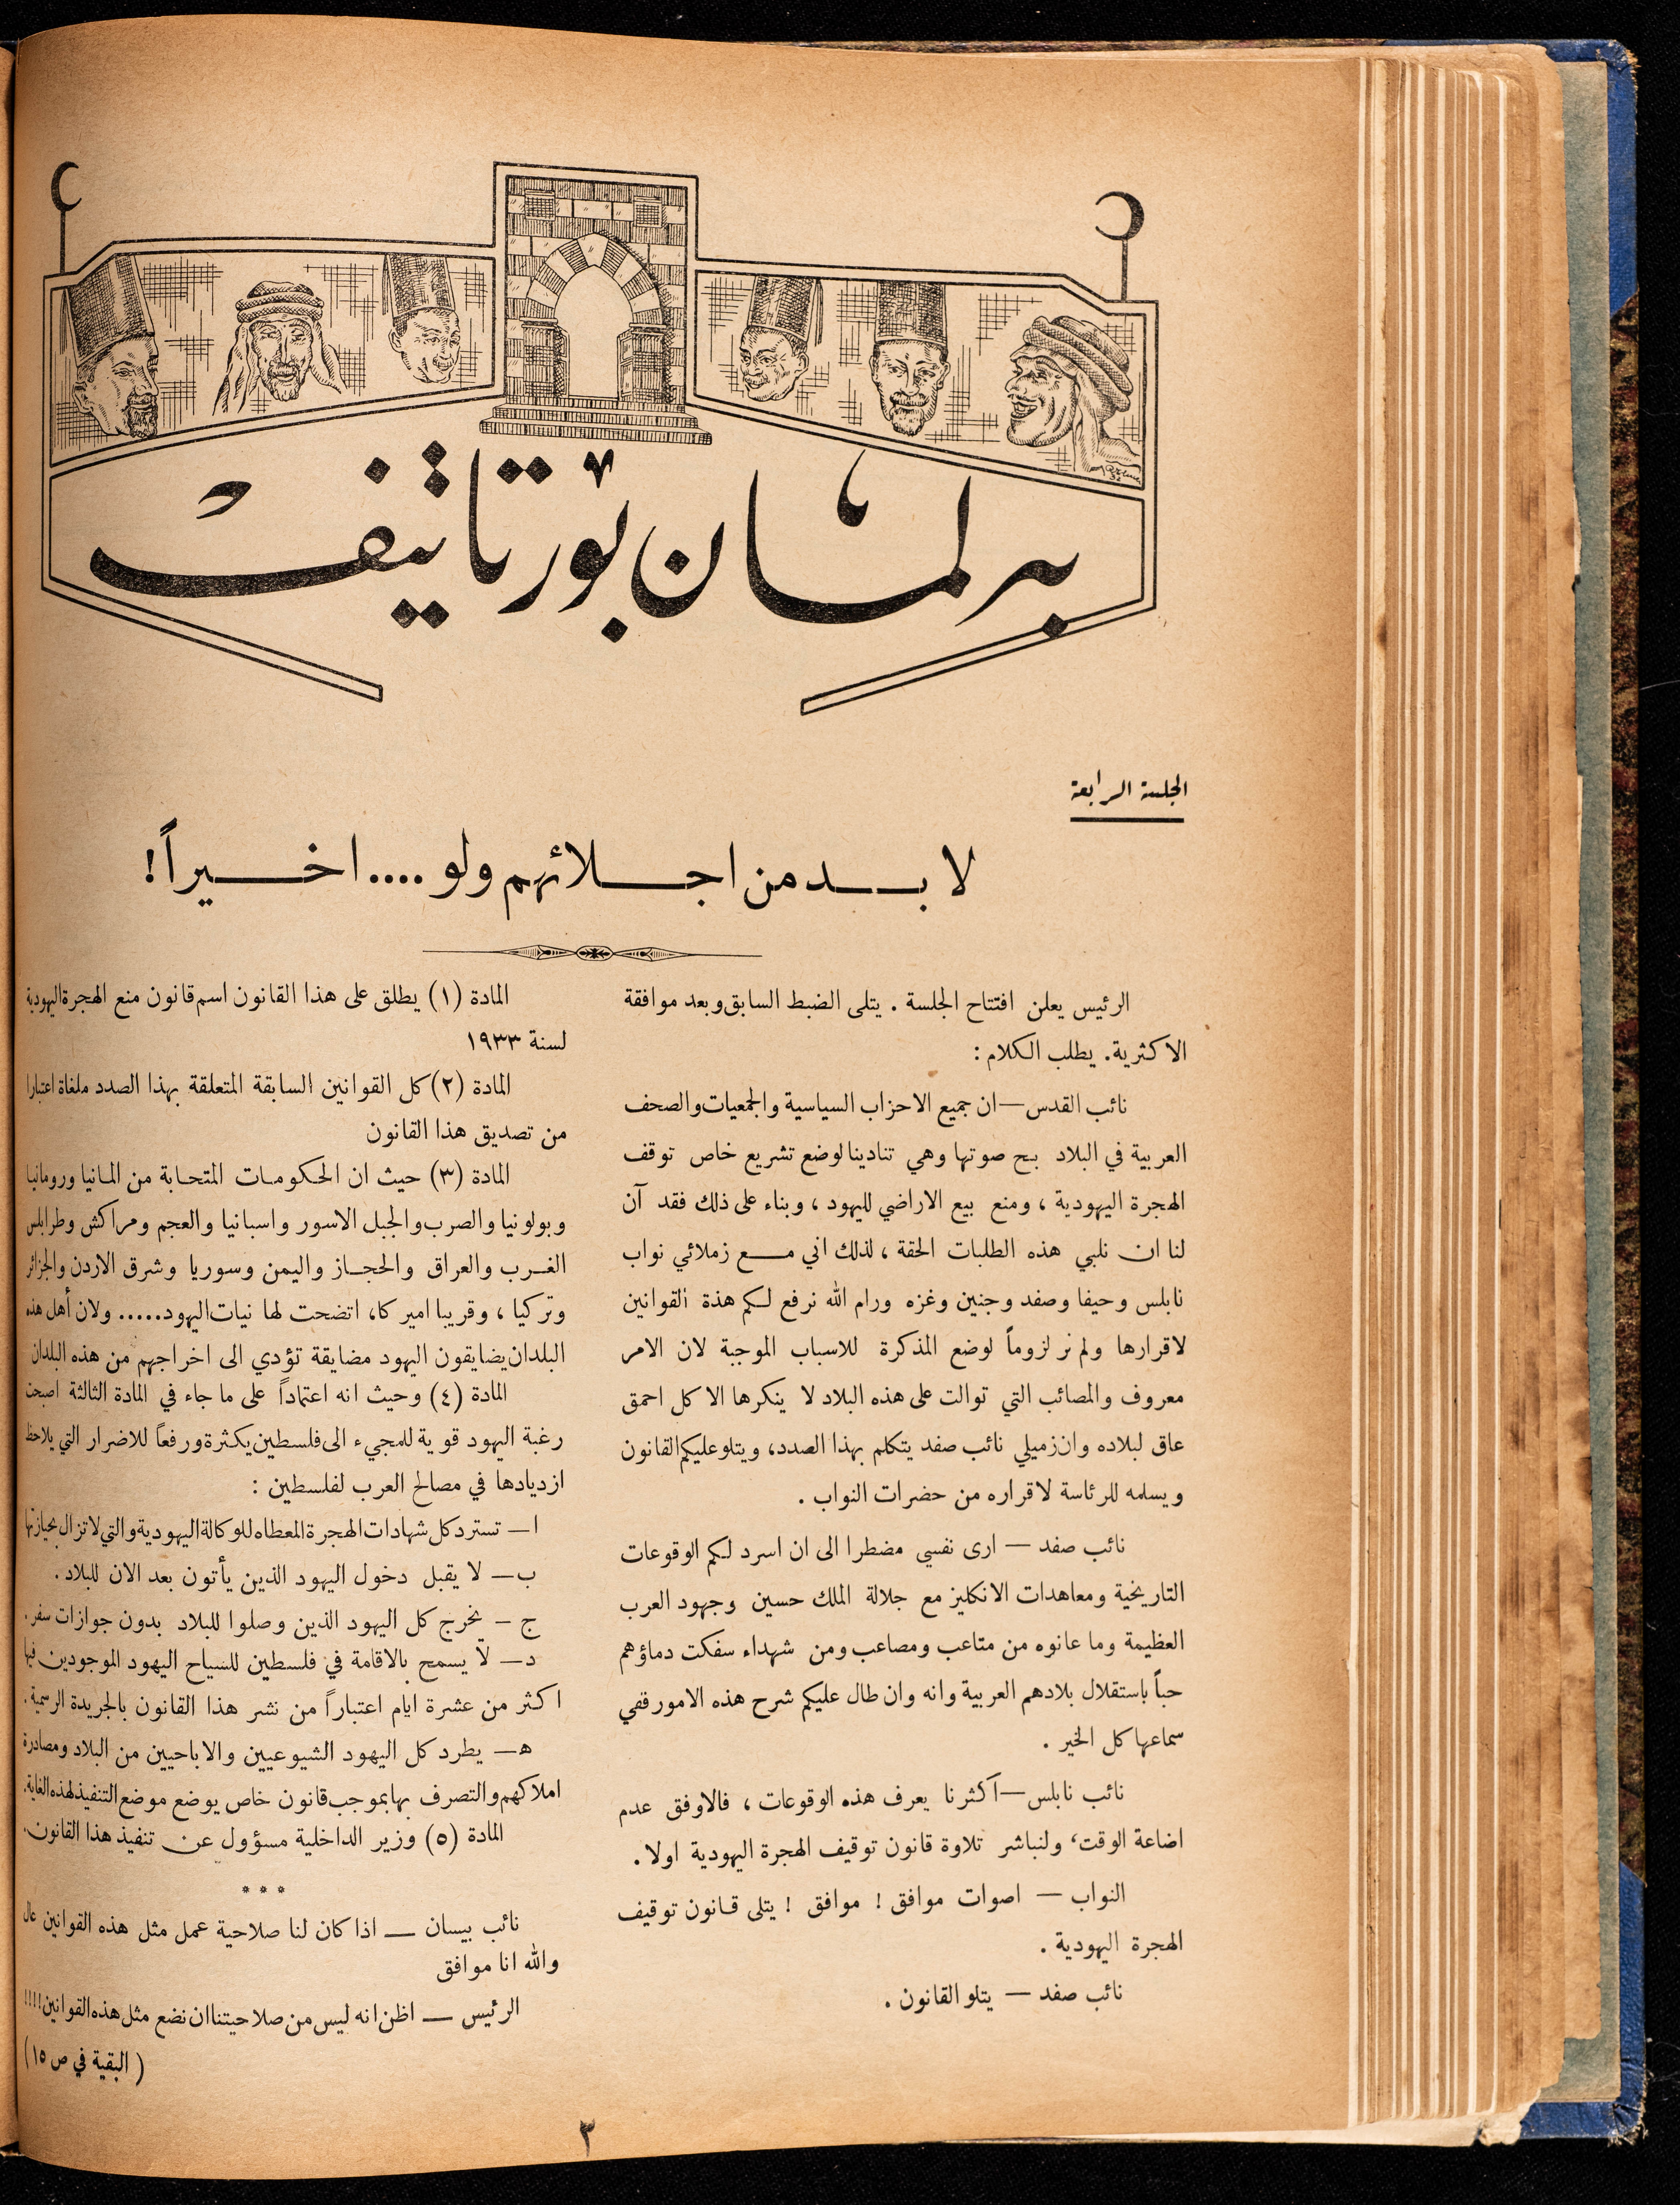 برلمان بورتاتيف
الجلسة الرابعة
لا بد من اجلائهم ولو .... اخيراً!
الرئيس يعلن افتتاح الجلسة . يتلى الضبط السابق وبعد موافقة
الاكثرية. يطلب الكلام :
نائب القدس — ان جميع الاحزاب السياسية والجمعيات والصحف
العربية في البلاد بح صوتها وهي تنادينا لوضع تشريع خاص توقف
الهجرة اليهودية ، ومنع بيع الاراضي لليهود ، وبناء على ذلك فقد آن
لنا ان نلبي هذه الطلبات الحقة ، لذلك اني مع زملائي نواب
نابلس وحيفا وصفد وجنين وغزه ورام الله نرفع لكم هذة القوانين
لاقرارها ولم نر لزوماً لوضع المذكرة للاسباب الموجبة لان الامر
معروف والمصائب التي توالت على هذه البلاد لا ينكرها الا كل احمق
عاق لبلاده وان زميلي نائب صفد يتكلم بهذا الصدد، ويتلو عليكم القانون
ويسلمه للرئاسة لاقراره من حضرات النواب .
نائب صفد — ارى نفسي مضطرا الى ان اسرد لكم الوقوعات
التاريخية ومعاهدات الانكليز مع جلالة الملك حسين وجهود العرب
العظيمة وما عانوه من متاعب ومصاعب ومن شهداء سفكت دماؤهم
حباً باستقلال بلادهم العربية وانه وان طال عليكم شرح هذه الامور ففي
سماعها كل الخير .
نائب نابلس — اكثرنا يعرف هذه الوقوعات ، فالاوفق عدم
اضاعة الوقت، ولنباشر تلاوة قانون توقيف الهجرة اليهودية اولا .
النواب — اصوات موافق ! موافق ! يتلى قانون توقيف
الهجرة اليهودية .
نائب صفد — يتلو القانون .
المادة (١) يطلق على هذا القانون اسم قانون منع الهجرة اليهودية
لسنة ١٩٣٣
المادة (٢) كل القوانين السابقة المتعلقة بهذا الصدد ملغاة اعتبارا
من تصديق هذا القانون
المادة (٣) حيث ان الحكومات المتحابة من المانيا ورومانيا
وبولونيا والصرب والجبل الاسور واسبانيا والعجم ومراكش وطرابلس
الغرب والعراق والحجاز واليمن وسوريا وشرق الاردن والجزائر
وتركيا ، وقريبا اميركا، اتضحت لها نيات اليهود..... ولان أهل هذه
البلدان يضايقون اليهود مضايقة تؤدي الى اخراجهم من هذه البلدان
المادة (٤) وحيث انه اعتماداً على ما جاء في المادة الثالثة اصبحت
رغبة اليهود قوية للمجيء الى فلسطين بكثرة ورفعاً للاضرار التي يلاحظ
ازديادها في مصالح العرب لفلسطين :
ا — تسترد كل شهادات الهجرة المعطاه للوكالة اليهودية والتي لا تزال بحيازتها
ب — لا يقبل دخول اليهود الذين يأتون بعد الان للبلاد .
ج — يخرج كل اليهود الذين وصلوا للبلاد بدون جوازات سفر .
د — لا يسمح بالاقامة في فلسطين للسياح اليهود الموجودين فيها
اكثر من عشرة ايام اعتباراً من نشر هذا القانون بالجريدة الرسمية .
ه — يطرد كل اليهود الشيوعيين والاباحيين من البلاد ومصادرة
املاكهم والتصرف بها بموجب قانون خاص يوضع موضع التنفيذ لهذه الغاية.
المادة (٥) وزير الداخلية مسؤول عن تنفيذ هذا القانون.
* * *
نائب بيسان — اذا كان لنا صلاحية عمل مثل هذه القوانين عال
والله انا موافق
الرئيس — اظن انه ليس من صلاحيتنا ان نضع مثل هذه القوانين !!!!
( البقية في ص ١٥ )
٣